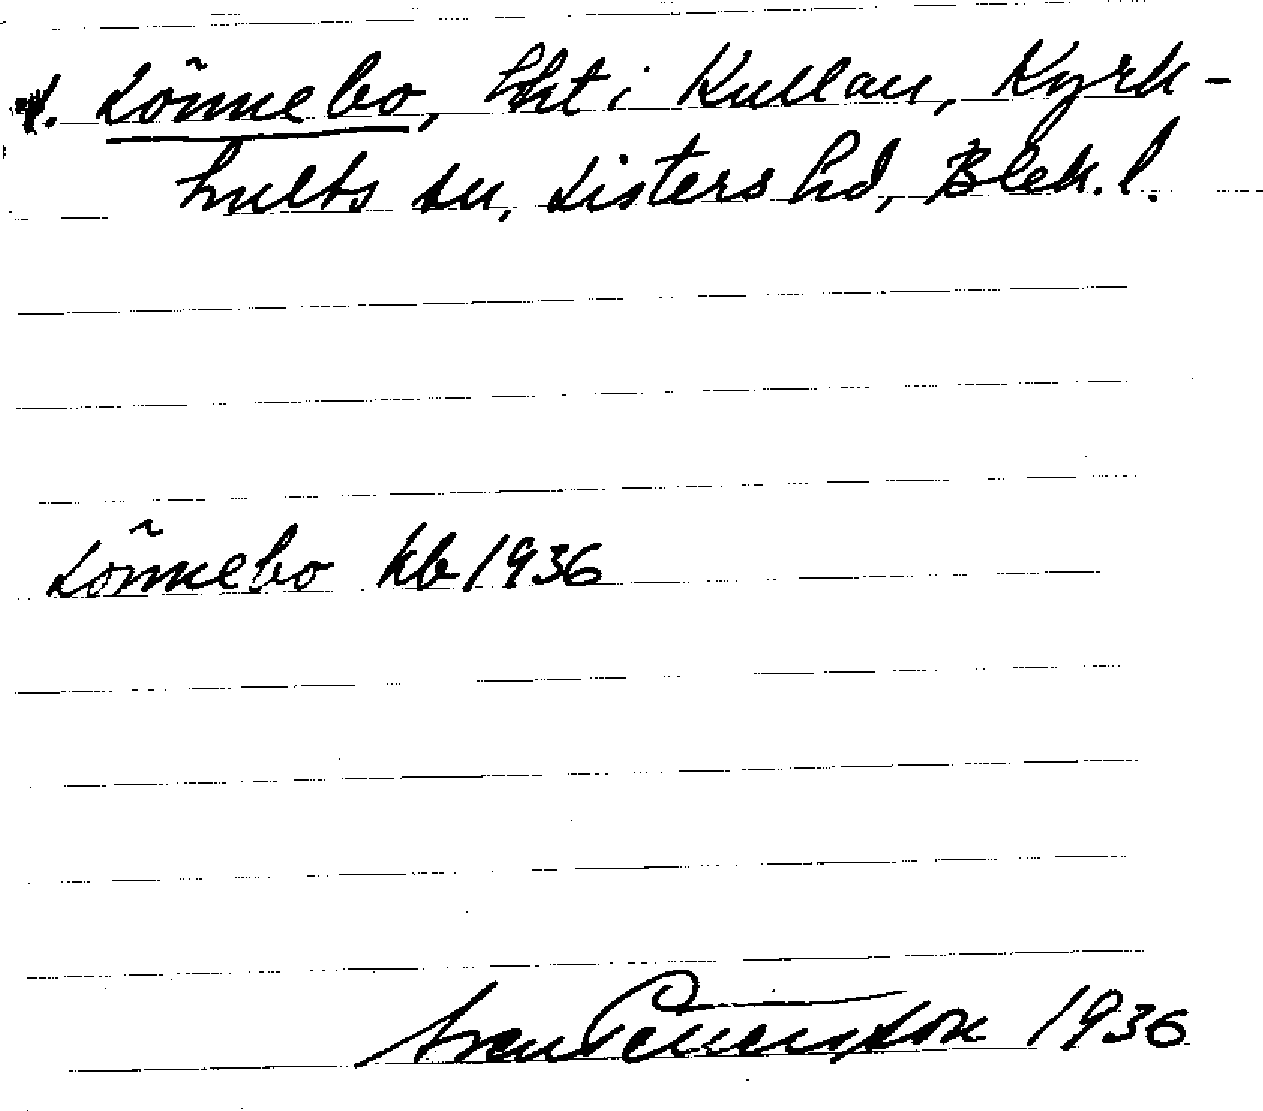 Lönnebo, lht i Kullan, Kyrk-
hults sn, Listers hd, Blek. l.
Lönnebo kb 1936
1936